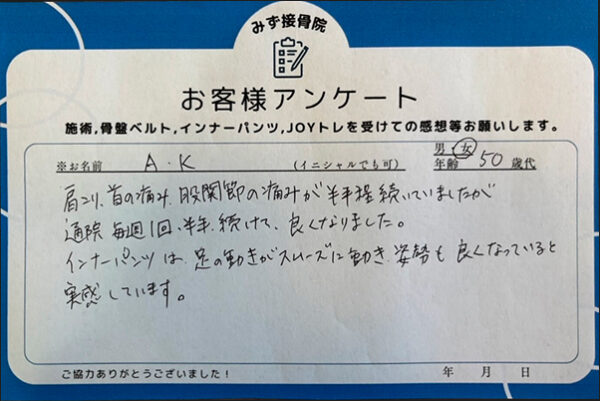 みず接骨院
お客様アンケート
施術,骨盤ベルト,インナーパンツ,JOYトレを受けての感想等お願いします。
※お名前 A.K (イニシャルでも可) 男・女 年齢 50 歳代
肩こり、首の痛み、股関節の痛みが半年程続いていましたが
通院 毎週1回、半年、続けて、良くなりました。
インナーパンツは、足の動きがスムーズに動き、姿勢も良くなっていると
実感しています。
ご協力ありがとうございました! 年 月 日